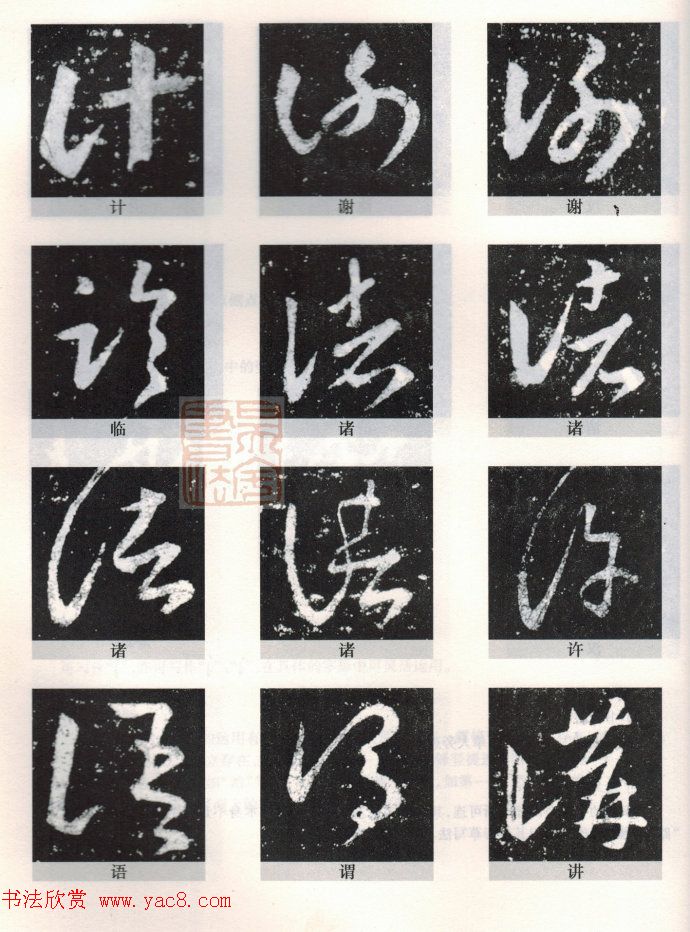 计 谢 谢
临 诸 诸
诸 诸 许
语 谓 讲
书法欣赏 www.yac8.com